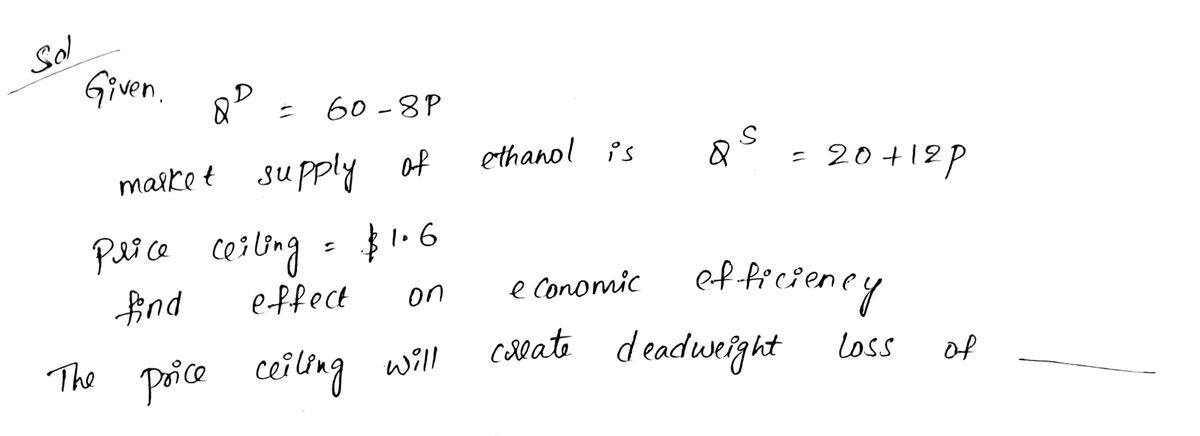 Sol
Given. Q^D = 60 - 8P
market supply of ethanol is Q^S = 20 + 12P
Price ceiling = $1.6
find effect on economic efficiency
The price ceiling will create deadweight loss of ______